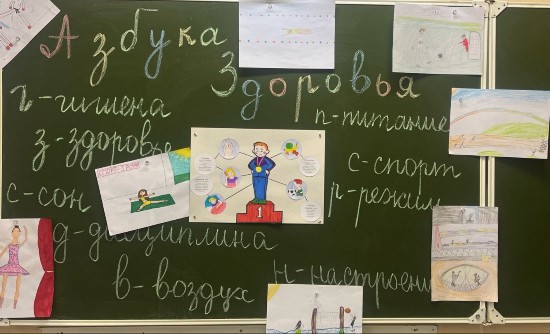 Азбука
Здоровья
г-гигиена
п-питание
з-здоровье
с-спорт
с-сон
р-режим
д-дисциплина
в-воздух
н-настроени
1